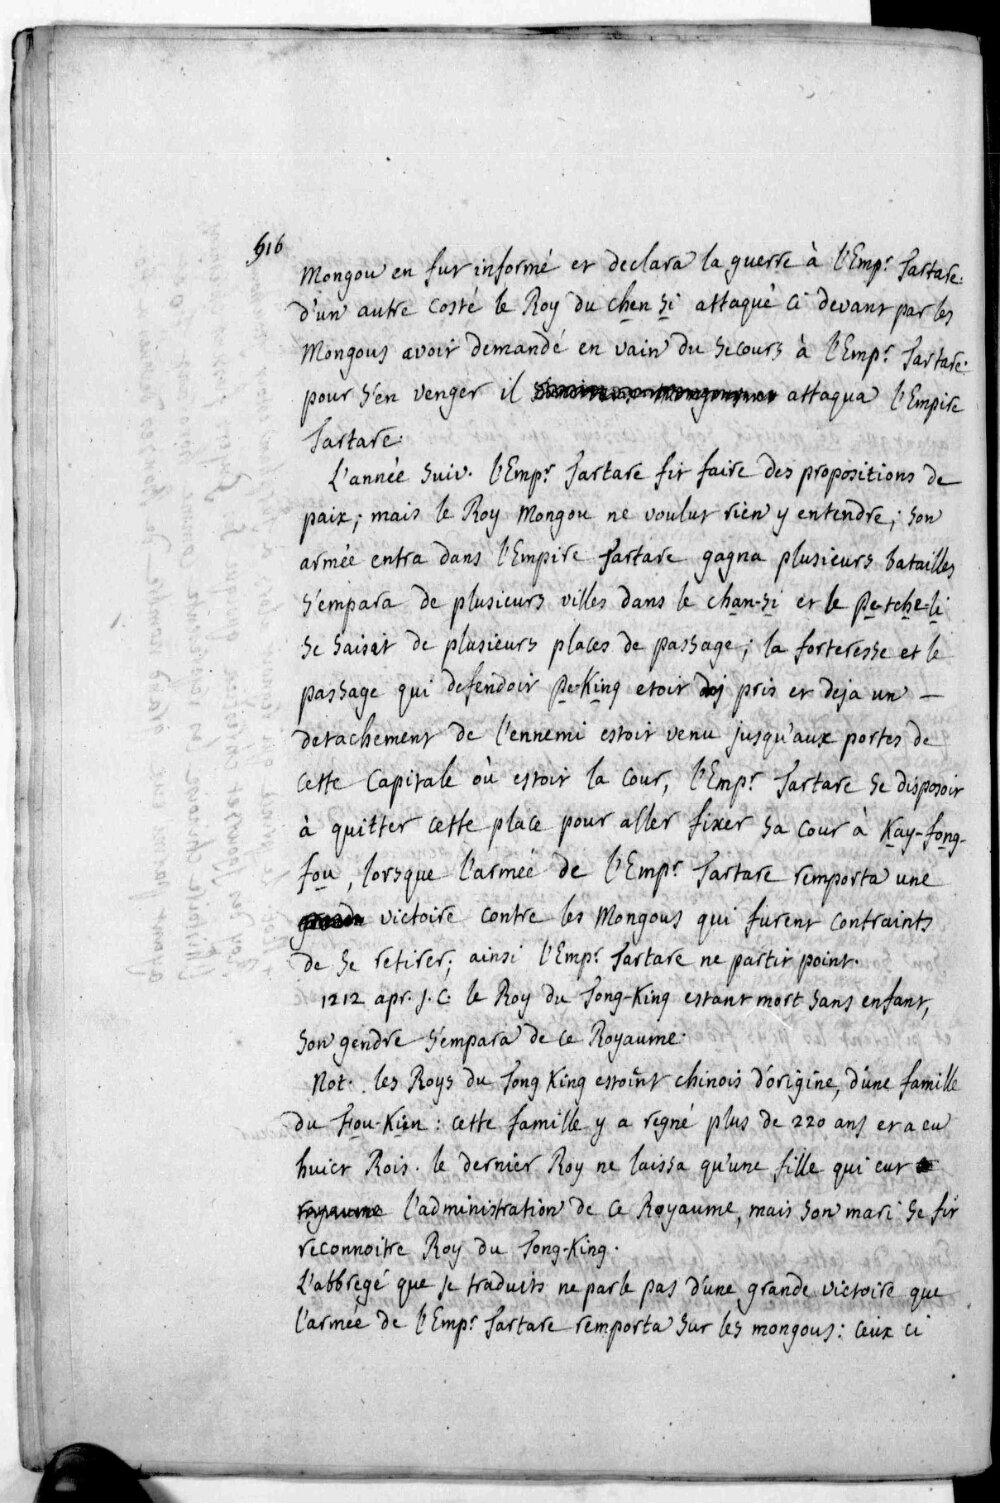 516
Mongou en fut informé et declara la guerre à l'Emp.r Tartare.
d'un autre costé le Roy du chen si attaqué ci devant par les
Mongous avoit demandé en vain du secours à l'Emp.r Tartare.
pour s'en venger il attaqua l'Empire
Tartare.
L'année suiv. l'Emp.r Tartare fit faire des propositions de
paix; mais le Roy Mongou ne voulut rien y entendre; son
armée entra dans l'Empire Tartare gagna plusieurs batailles
s'empara de plusieurs villes dans le chan-si et le Pe-tche-li
se saisit de plusieurs places de passage; la forteresse et le
passage qui defendoit Pe-King etoit pris et deja un —
detachement de l'ennemi estoit venu jusqu'aux portes de
cette Capitale où estoit la Cour, l'Emp.r Tartare se disposoit
à quitter cette place pour aller fixer sa cour à Kay-fong-
fou, lorsque l'armée de l'Emp.r Tartare remporta une
grande victoire contre les Mongous qui furent contraints
de se retirer; ainsi l'Emp.r Tartare ne partit point.
1212 apr. J.C. le Roy du Tong-King estant mort sans enfant,
son gendre s'empara de ce Royaume.
Not. les Roys du Tong King estoint chinois d'origine, d'une famille
du Fou-Kien: cette famille y a regné plus de 220 ans et a eu
huict Rois. le dernier Roy ne laissa qu'une fille qui eut
royaume l'administration de ce Royaume, mais son mari se fit
reconnoitre Roy du Tong-King.
L'abbregé que je traduits ne parle pas d'une grande victoire que
l'armée de l'Emp.r Tartare remporta sur les mongous: ceux ci